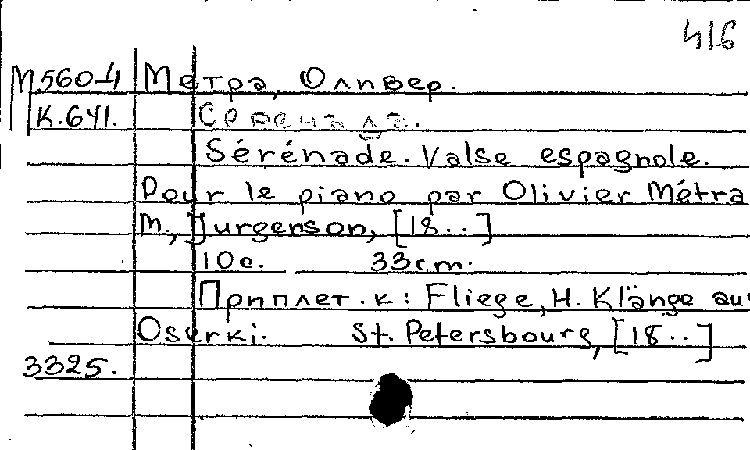 416
М560-4 Метра, Оливер.
К.641. Серенада.
Sérénade. Valse espagnole.
Pour le piano par Olivier Métra
M., Jurgerson, [18..]
10с. 33cm.
Приплет. к: Fliege, H. Klänge aus
Oserki. St. Petersbourg, [18..]
3325.